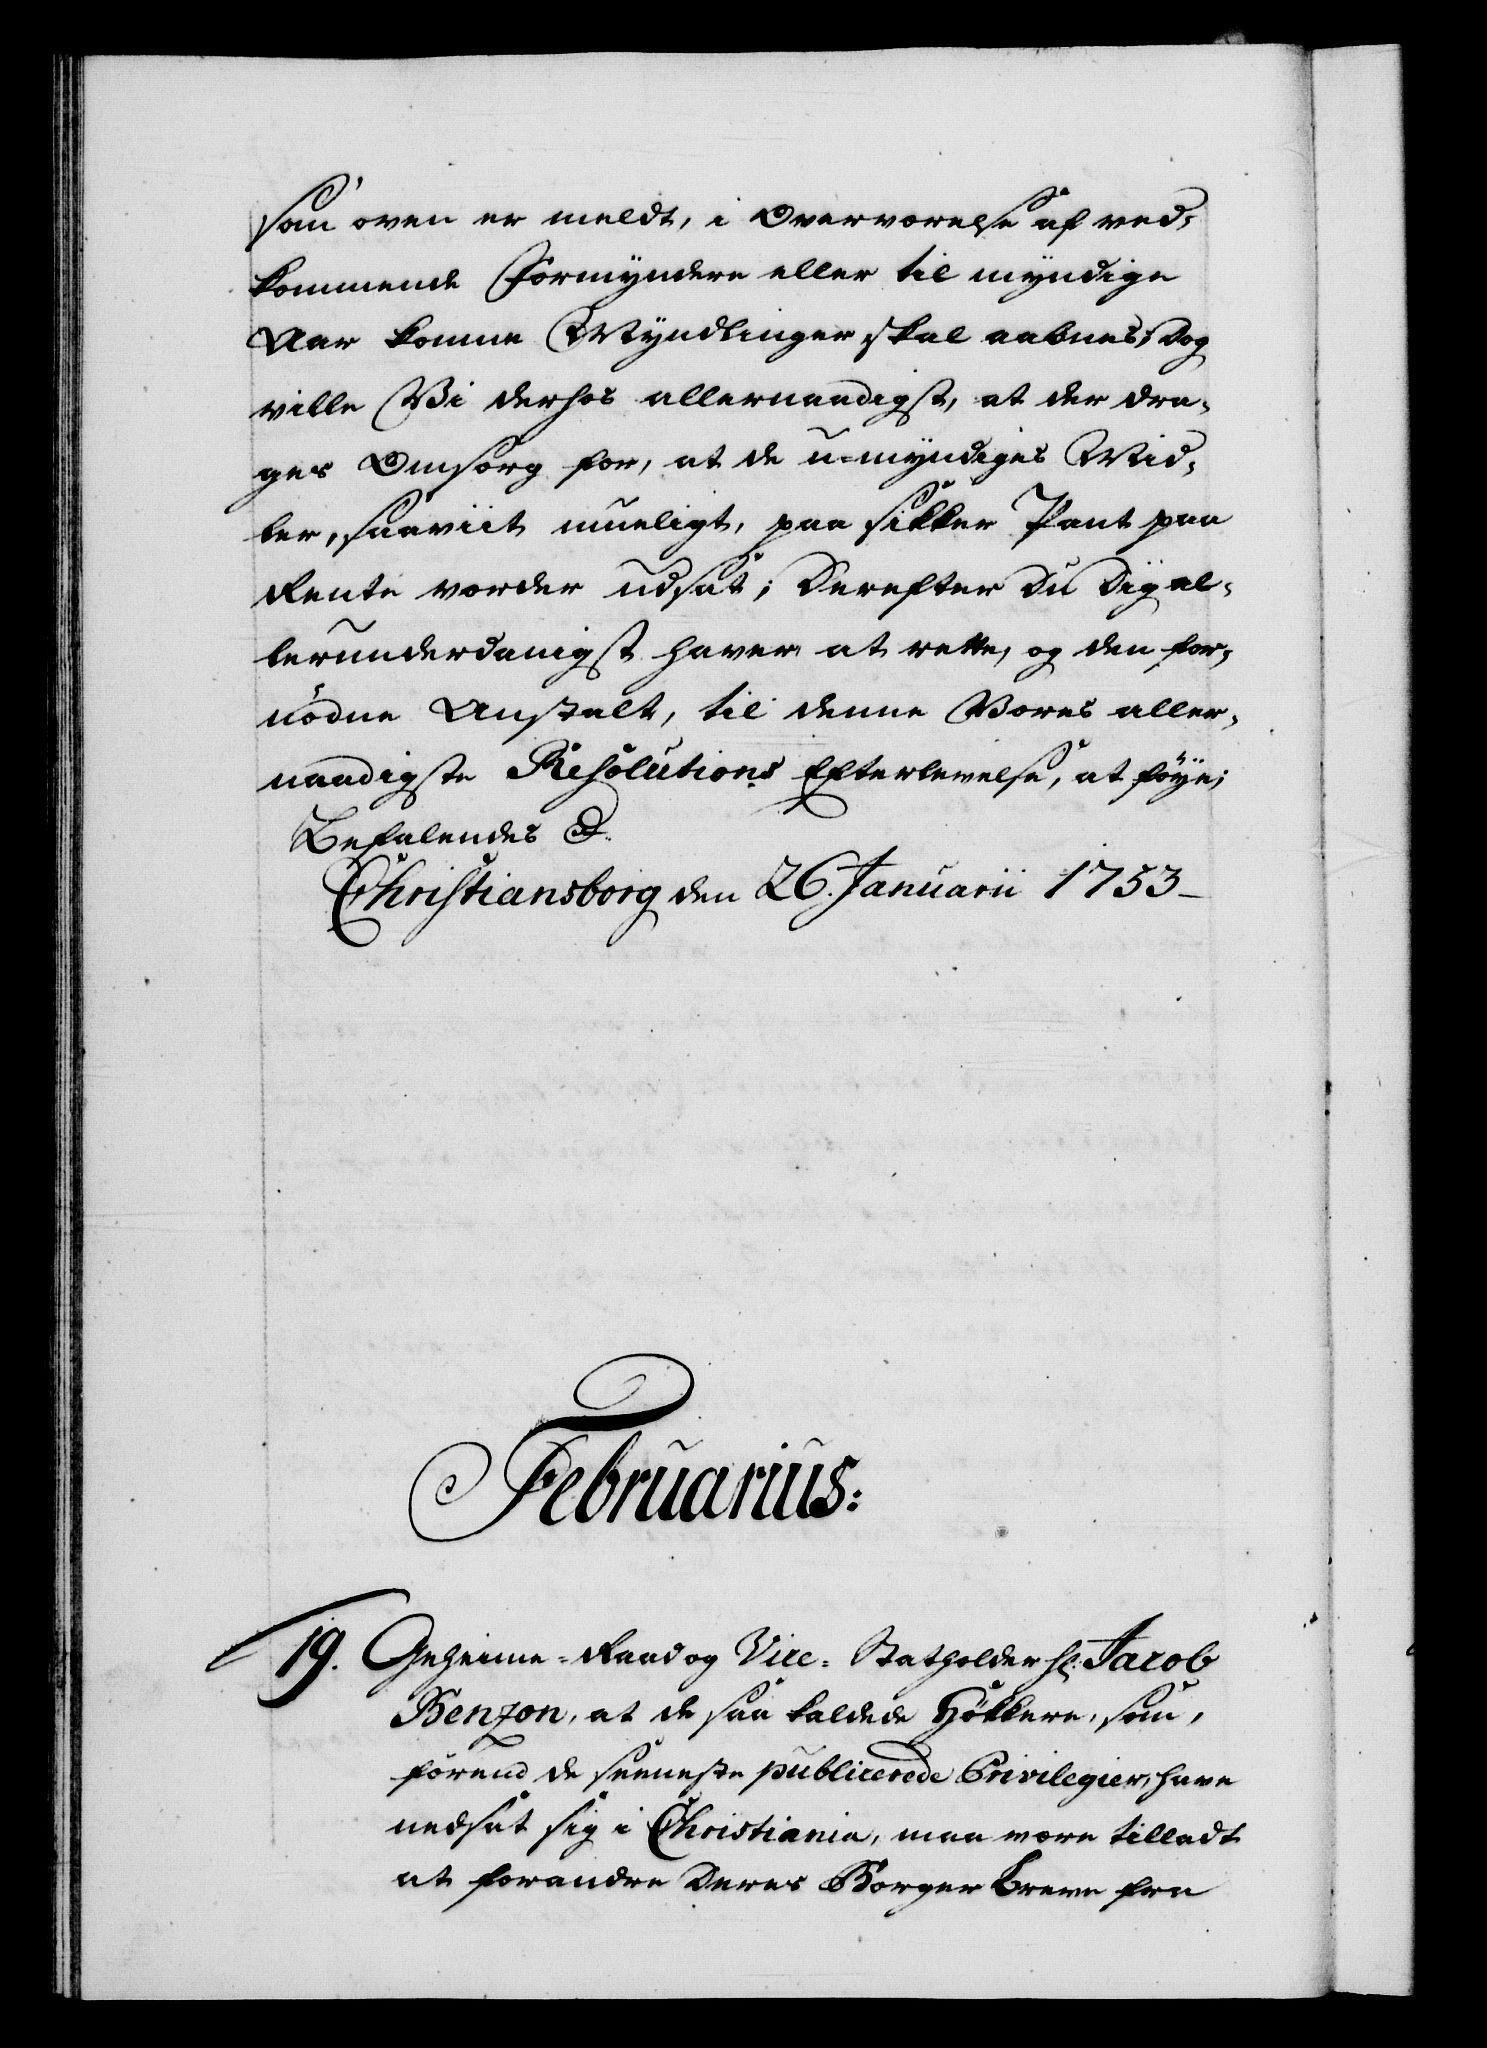 som oven er meldt, i Overværelse af ved-
kommende Formyndere eller til myndige
Aar komne Myndlinger skal aabnes; Dog
ville Vi derhos allernaadigst, at der dra-
ges Omsorg for, at de u-myndiges Mid-
ler, saaviit mueligt, paa sikker Pant paa
Rente vorder udsat; Derefter Du Dig al-
lerunderdanigst haver at rette, og den for-
nødne Anstalt, til denne Vores aller-
naadigste Resolutions Efterlevelse, at føye;
Befalendes &.
Christiansborg den 26. Januarii 1753
Februarius:
19. Geheime-Raad og Vice-Statholder Hr: Jacob
Benzon, at de saa kaldede Høkkere, som,
førend de seeneste publicerede Privilegier, have
nedsat sig i Christiania, maa være tilladt
at forandre Deres Borger Breve fra